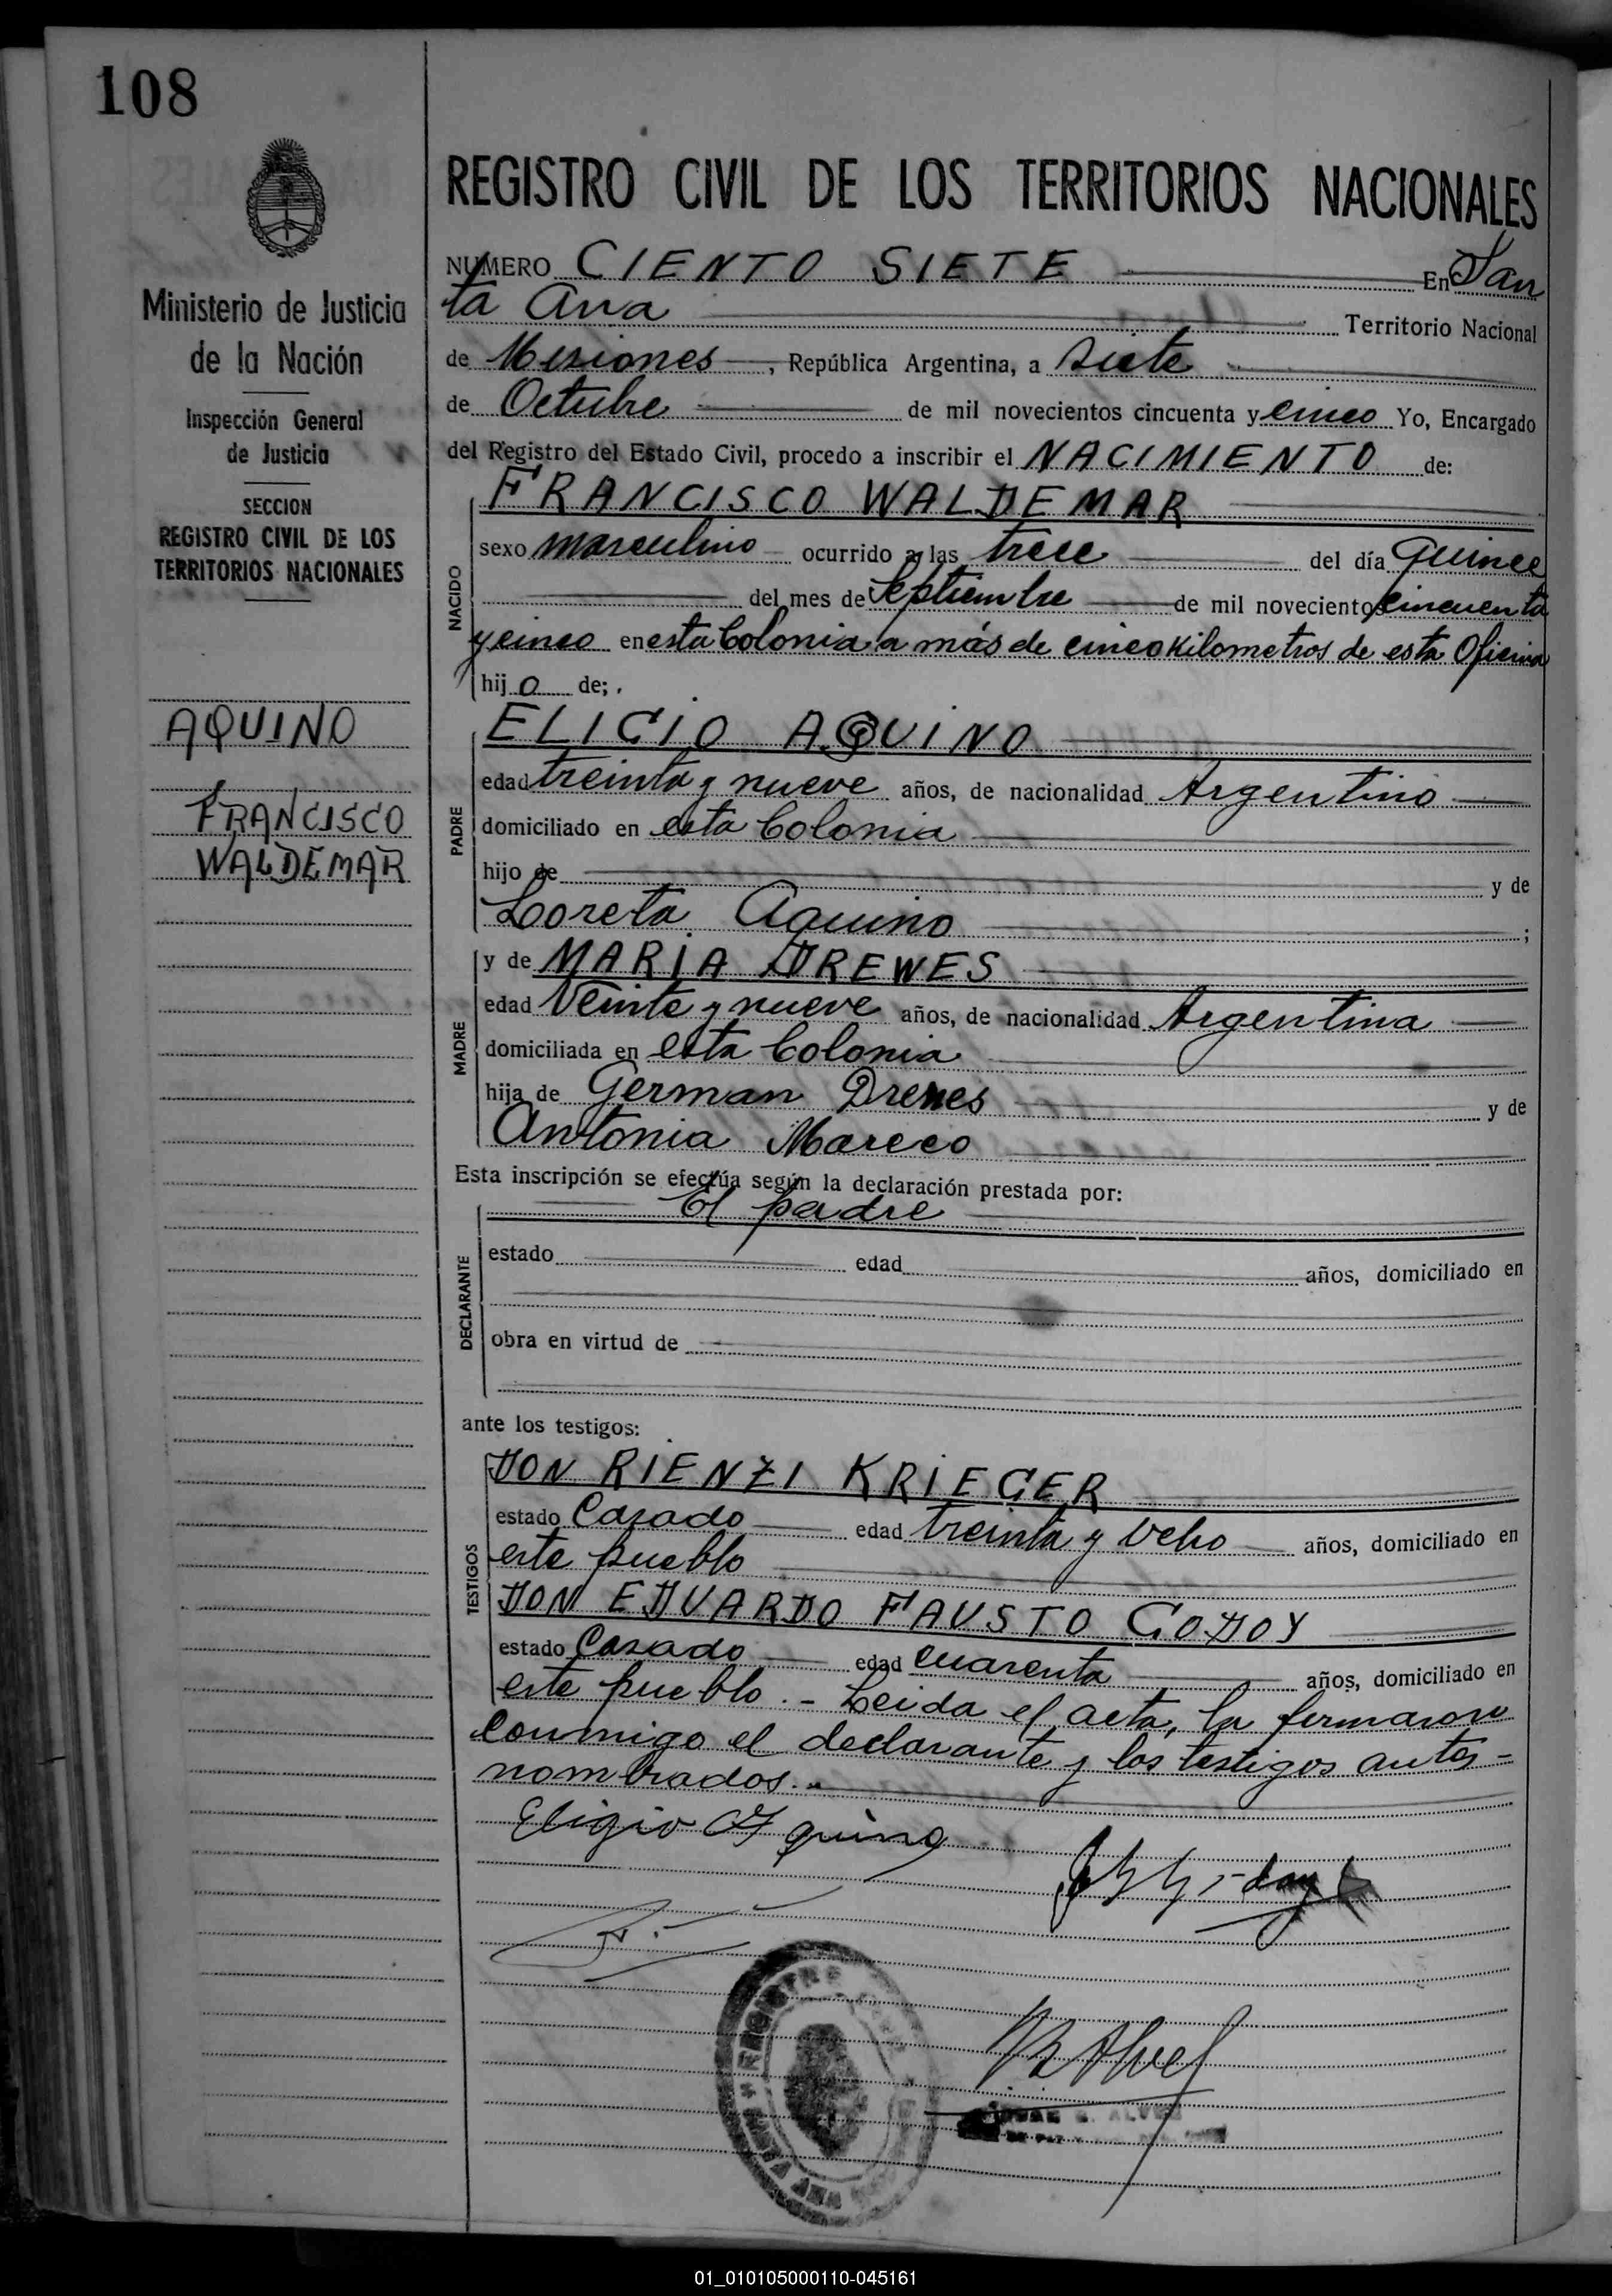 108
Ministerio de Justicia
de la Nación
Inspección General
de Justicia
SECCION
REGISTRO CIVIL DE LOS
TERRITORIOS NACIONALES
AQUINO
FRANCISCO
WALDEMAR
REGISTRO CIVIL DE LOS TERRITORIOS NACIONALES
NUMERO CIENTO SIETE En San
ta Ana Territorio Nacional
de Misiones, República Argentina, a siete
de Octubre de mil novecientos cincuenta y cinco Yo, Encargado
del Registro del Estado Civil, procedo a inscribir el NACIMIENTO de:
NACIDO
FRANCISCO WALDEMAR
sexo masculino ocurrido a las trece del día Quince
del mes de Septiembre de mil novecientos cincuenta
y cinco en esta Colonia a más de cinco kilometros de esta Oficina
hijo de;
PADRE
ELIGIO AQUINO
edad treinta y nueve años, de nacionalidad Argentino
domiciliado en esta Colonia
hijo de y de
Loreta Aquino ;
MADRE
y de MARIA DREWES
edad Veinte y nueve años, de nacionalidad Argentina
domiciliada en esta Colonia
hija de German Drewes y de
Antonia Mareco
Esta inscripción se efectúa según la declaración prestada por:
DECLARANTE
El padre
estado edad años, domiciliado en
obra en virtud de
ante los testigos:
TESTIGOS
DON RIENZI KRIEGER
estado Casado edad treinta y ocho años, domiciliado en
este pueblo
DON EDUARDO FAUSTO GODOY
estado Casado edad cuarenta años, domiciliado en
este pueblo.- Leida el acta, la firmaron
conmigo el declarante y los testigos antes-
nombrados.-
Eligio Aquino
REGISTRO
SANTA ANA
01_010105000110-045161